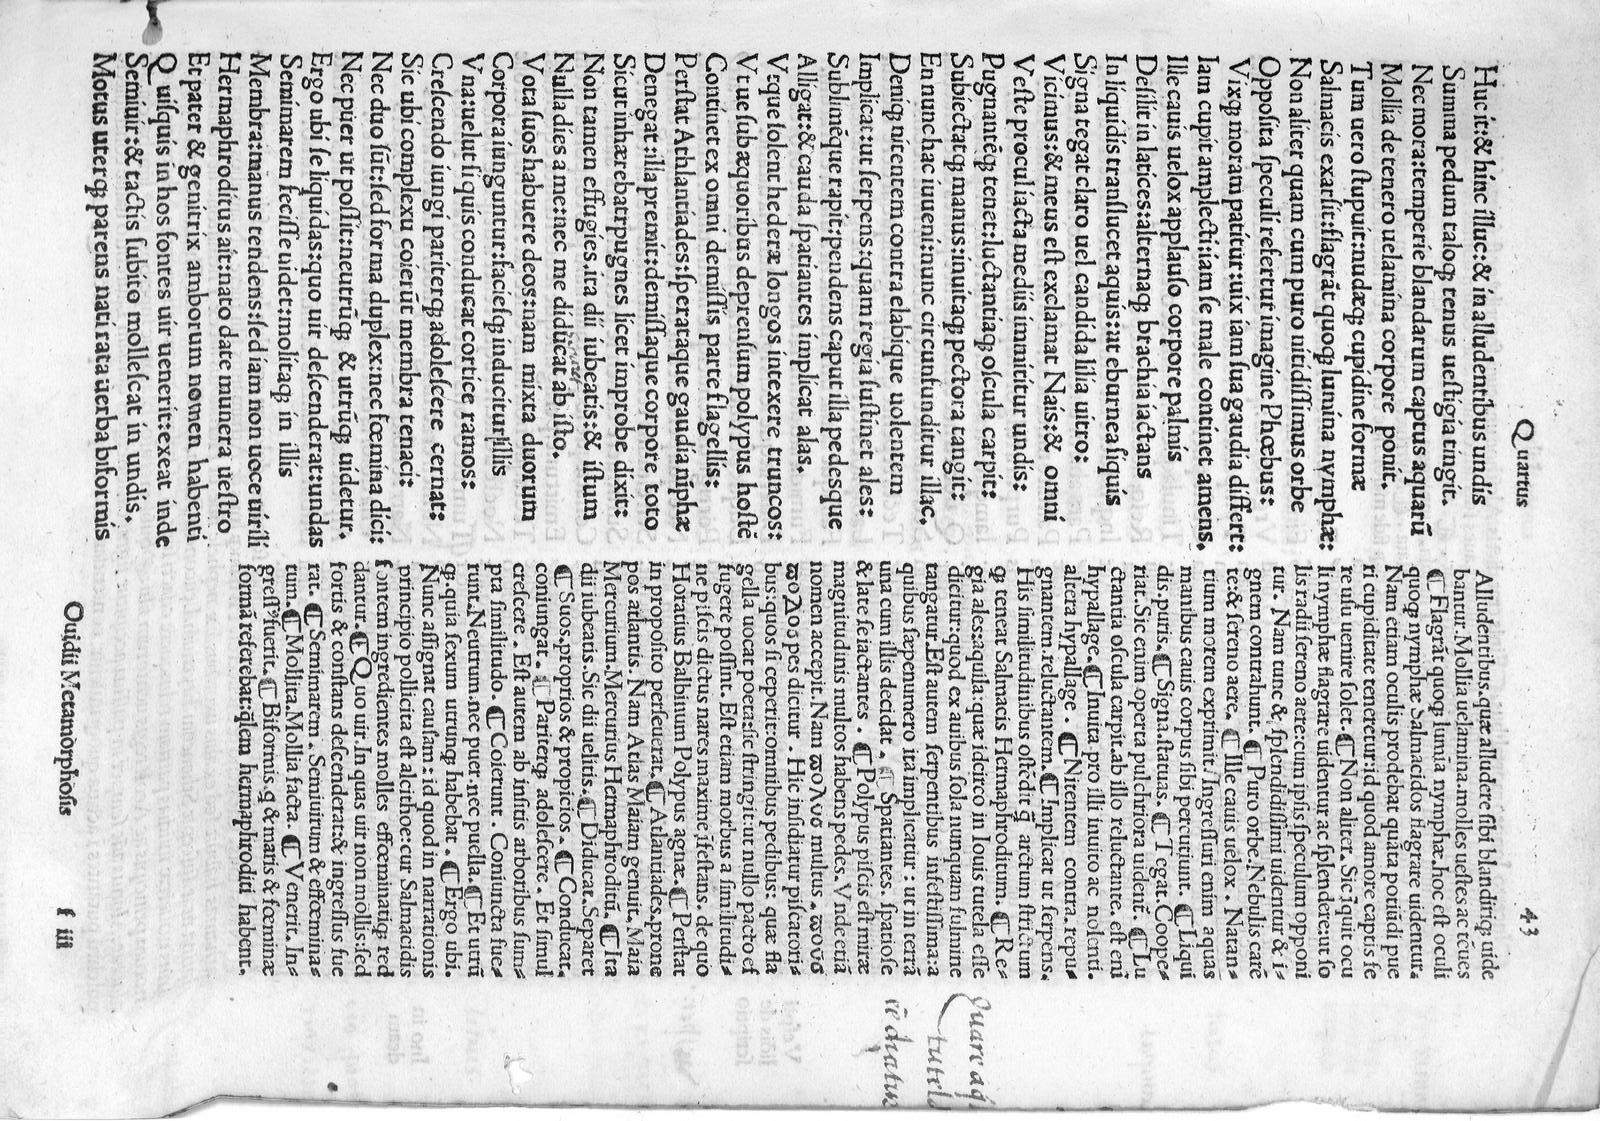 Quartus
43
Huc it:& hinc illuc:& in alludentibus undis
Summa pedum taloq; tenus uestigia tingit.
Nec mora:temperie blandarum captus aquarū
Mollia de tenero uelamina corpore ponit.
Tum uero stupuit:nudæq; cupidine formæ
Salmacis exarsit:flagrāt quoq; lumina nymphæ:
Non aliter quam cum puro nitidissimus orbe
Opposita speculi refertur imagine Phœbus:
Vixq; moram patitur:uix iam sua gaudia differt:
Iam cupit amplecti:iam se male continet amens.
Ille cauis uelox applauso corpore palmis
Desilit in latices:alternaq; brachia iactans
In liquidis translucet aquis:ut eburnea siquis
Signa tegat claro uel candida lilia uitro:
Vicimus:& meus est exclamat Nais:& omni
Veste procul iacta mediis immittitur undis:
Pugnantēq; tenet:luctantiaq; oscula carpit:
Subiectatq; manus:inuitaq; pectora tangit:
En nunc hac iuueni:nunc circunfunditur illac.
Deniq; nitentem contra elabique uolentem
Implicat:ut serpens:quam regia sustinet ales:
Sublimēque rapit:pendens caput illa pedesque
Alligat:& cauda spatiantes implicat alas.
Vtque solent hederæ longos intexere truncos:
Vtue sub æquoribus deprensum polypus hostē
Continet ex omni demissis parte flagellis:
Perstat Athlantiades:sperataque gaudia nīphæ
Denegat:illa premit:demissaque corpore toto
Sicut inhærebat:pugnes licet improbe dixit:
Non tamen effugies.ita dii iubeatis:& istum
Nulla dies a me:nec me diducat ab isto.
Vota suos habuere deos:nam mixta duorum
Corpora iunguntur:faciesq; inducitur illis
Vna:uelut si quis conducat cortice ramos:
Crescendo iungi pariterq; adolescere cernat:
Sic ubi complexu coierūt membra tenaci:
Nec duo sūt:sed forma duplex:nec fœmina dici:
Nec puer ut possit:neutrūq; & utrūq; uidetur.
Ergo ubi se liquidas:quo uir descenderat:undas
Semimarem fecisse uidet:molitaq; in illis
Membra:manus tendens:sed iam non uoce uirili
Hermaphroditus ait:nato date munera uestro
Et pater & genitrix amborum nomen habenti
Quisquis in hos fontes uir uenerit:exeat inde
Semiuir:& tactis subito mollescat in undis.
Motus uterq; parens nati rata uerba biformis
Alludentibus.quæ alludere sibi blandiriq; uide
bantur.Mollia uelamina.molles uestes ac tēues
¶ Flagrāt quoq; lumīa nymphæ.hoc est oculi
quoq; nymphæ Salmacidos flagrare uidentur.
Nam etiam oculis prodebat quāta potiūdi pue
ri cupiditate teneretur:id quod amore captis se
re usu uenire solet.¶ Non aliter.Sic īquit ocu
li nymphæ flagrare uidentur ac splenderent so
lis radii sereno aere:cum ipsis speculum opponi
tur. Nam tunc & splendidissimi uidentur & i-
gnem contrahunt.¶ Puro orbe.Nebulis carē
te:& sereno aere.¶ Ille cauis uelox . Natan-
tium morem exprimit. Ingressuri enim aquas
manibus cauis corpus sibi percutiunt.¶ Liqui
dis.puris.¶ Signa.statuas.¶ Tegat.Coope-
riat.Sic enim operta pulchriora uident̄.¶ Lu
ctantia oscula carpit.ab illo reluctante. est enī
hypallage.¶ Inuita pro illi inuito ac nolenti.
altera hypallage . ¶ Nitentem contra.repu-
gnantem.reluctantem.¶ Implicat ut serpens.
His similitudinibus ostēdit q̄ arctum strictum
q; teneat Salmacis Hermaphroditum. ¶ Re-
gia ales:aquila:quæ idcirco in Iouis tutela esse
dicitur:quod ex auibus sola nunquam fulmine
tangatur.Est autem serpentibus infestissima:a
quibus sæpenumero ita implicatur : ut in terrā
una cum illis decidat. ¶ Spatiantes. spatiose
& late se iactantes . ¶ Polypus piscis est miræ
magnitudinis multos habens pedes.Vnde etiā
nomen accepit.Nam πολυσ multus . πουσ
ποδοσ pes dicitur . Hic insidiatur piscatori-
bus:quos si ceperit:omnibus pedibus: quæ fla
gella uocat poeta:sic stringit:ut nullo pacto ef
fugere possint. Est etiam morbus a similitudi-
ne piscis dictus nares maxime īfestans.de quo
Horatius Balbinum Polypus agnæ.¶ Perstat
in proposito perseuerat.¶ Atlantiades.prone
pos atlantis. Nam Atlas Maiam genuit. Maia
Mercurium.Mercurius Hermaphroditū.¶ Ita
dii iubeatis.Sic dii uelitis.¶ Diducat.Separet
¶ Suos.proprios & propicios . ¶ Conducat.
coniungat. ¶ Pariterq; adolescere. Et simul
crescere . Est autem ab insitis arboribus sum-
pta similitudo. ¶ Coierunt. Coniuncta fue-
runt.Neutrum.nec puer.nec puella.¶ Et utrū
q; quia sexum utrunq; habebat . ¶ Ergo ubi.
Nunc assignat causam : id quod in narrationis
principio pollicita est alcithoe:cur Salmacidis
fontem ingredientes molles effœminatiq; red
dantur.¶ Quo uir.In quas uir non mollis:sed
fortis & constans descenderat:& ingressus fue
rat. ¶ Semimarem . Semiuirum & effœmina-
tum.¶ Mollita.Mollia facta. ¶ Venerit. In-
gressus fuerit. ¶ Biformis.q & maris & fœminæ
formā referebat:q̄lem hermaphroditi habent.
quare aq̄
tutela
dicatur
Ouidii Metamorphosis
f iii